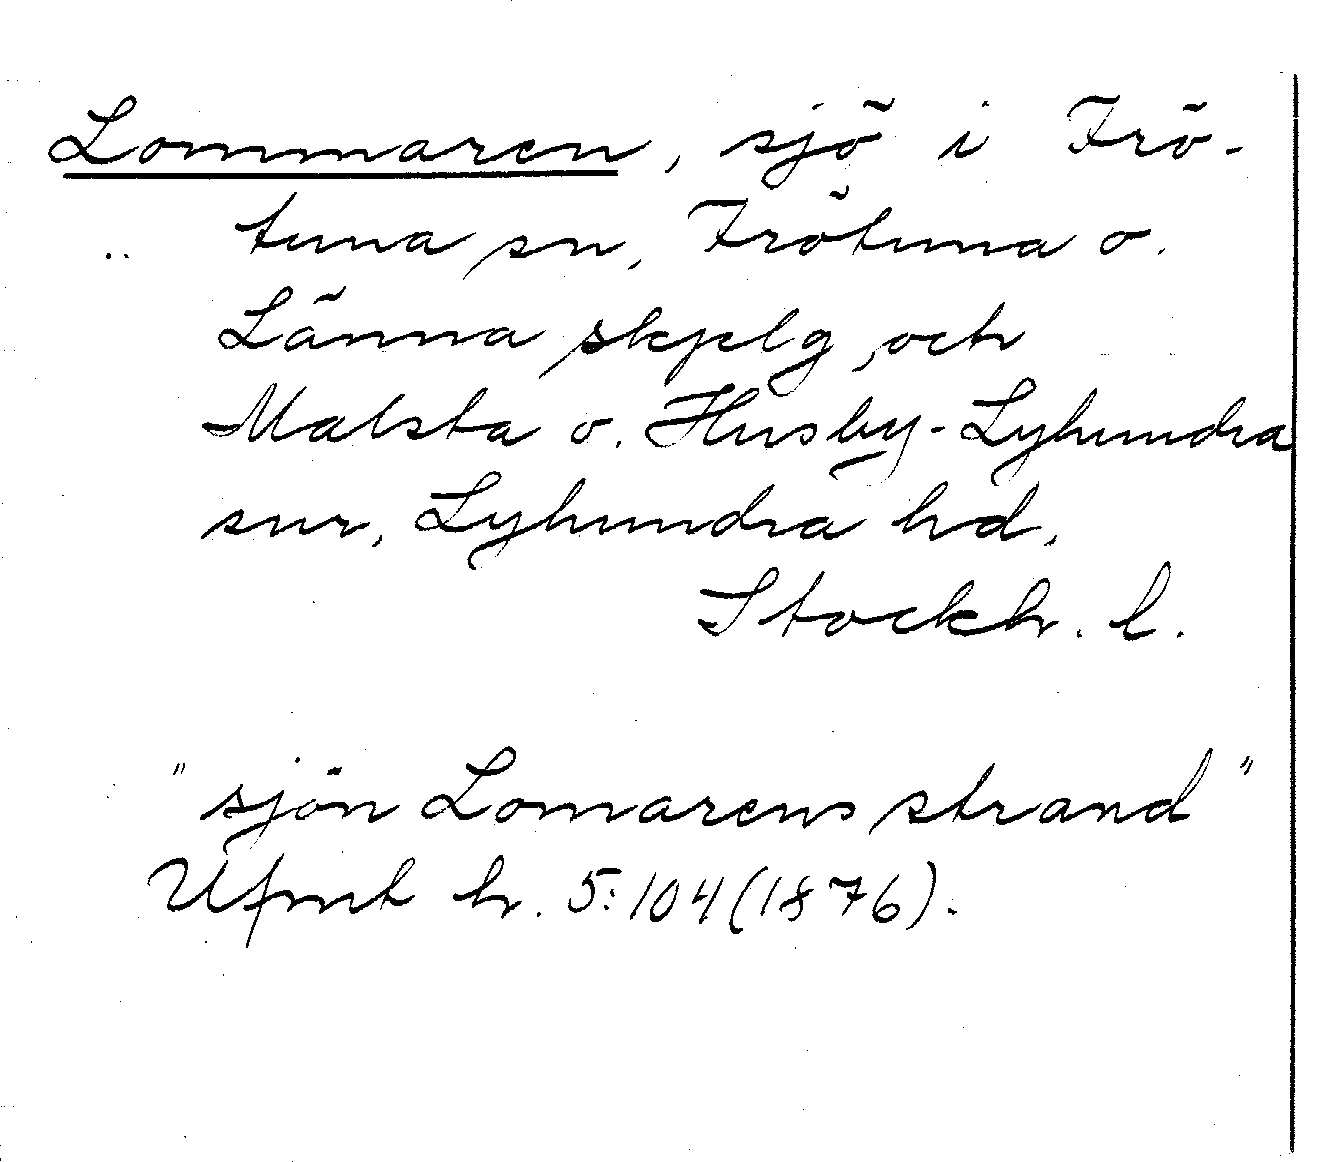 Lommaren, sjö i Frö-
tuna sn, Frötuna o.
Länna skplg, och
Malsta o. Husby-Lyhundra
snr, Lyhundra hd,
Stockh. l.
"sjön Lomarens strand"
Ufmt h. 5:104 (1876).